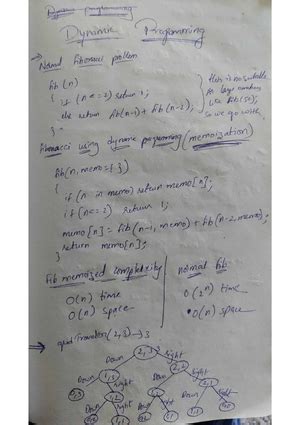 Dynamic Programming
Dynamic Programming
→ Normal fibonacci problem
fib (n)
{
if (n <= 2) return 1;
else return fib(n-1) + fib(n-2);
}
this is not suitable
for large numbers
like fib(50);
so we go with
fibonacci using dynamic programming (memoization)
fib(n, memo={})
{
if (n in memo) return memo[n];
if (n<=2) return 1;
memo[n] = fib(n-1, memo) + fib(n-2, memo);
return memo[n];
}
fib memoized complexity
O(n) time
O(n) space
normal fib:
O(2ⁿ) time
O(n) space
→ gridTraveler(2,3) → 3
2,3
Down Right
1,3 2,2
Down Right Down Right
0,3 1,2 1,2 2,1
Down Right